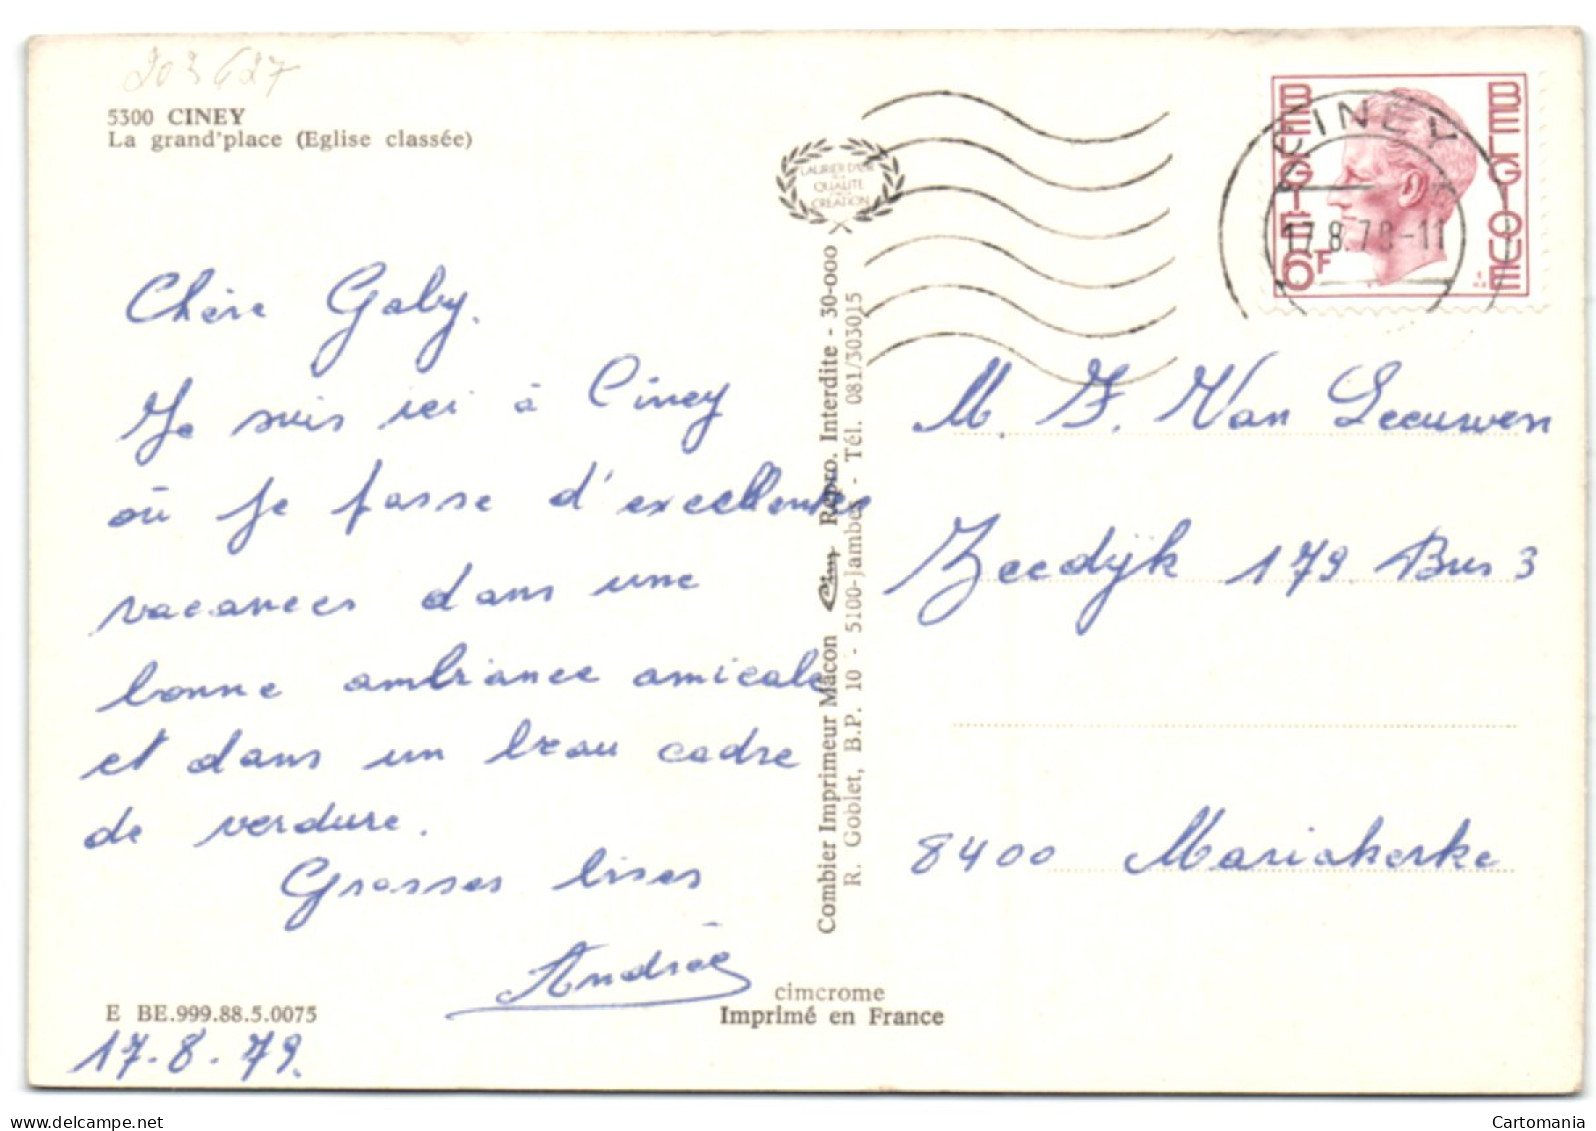 203627
5300 CINEY
La grand'place (Eglise classée)
LAURIER D'OR
QUALITE
CREATION
BELGIE
BELGIQUE
6F
CINEY
17.8.79-11
Chère Gaby.
Je suis ici à Ciney
où je passe d'excellentes
vacances dans une
bonne ambiance amicale
et dans un beau cadre
de verdure.
Grosses bises
Andrée
E BE.999.88.5.0075
17.8.79.
Combier Imprimeur Mâcon Cim Repro. Interdite - 30-000
R. Goblet, B.P. 10 - 5100-Jambes - Tél. 081/303015
cimcrome
Imprimé en France
M. J. Van Leeuwen
Zeedijk 179 Bus 3
8400 Mariakerke
www.delcampe.net
Cartomania